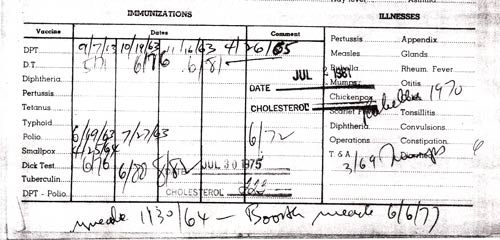 IMMUNIZATIONS
ILLNESSES
Vaccine Dates Comment
DPT 10/19/63 11/16/63 4/26/65
D.T. 6/76 6/81
Diphtheria
Pertussis
Tetanus
Typhoid
Polio 6/19/63 7/27/63 6/72
Smallpox 4/25/64
Dick Test 6/76 6/80 8/82 JUL 30 1975
Tuberculin CHOLESTEROL
DPT - Polio
DATE JUL 1981
CHOLESTEROL
Pertussis Appendix
Measles Glands
Rubella Rheum. Fever
Mumps Otitis
Chickenpox 1970
Scarlet Tonsillitis
Diphtheria Convulsions
Operations Constipation
T & A 3/69
measle 1/30/64 - Booster measle 6/6/77